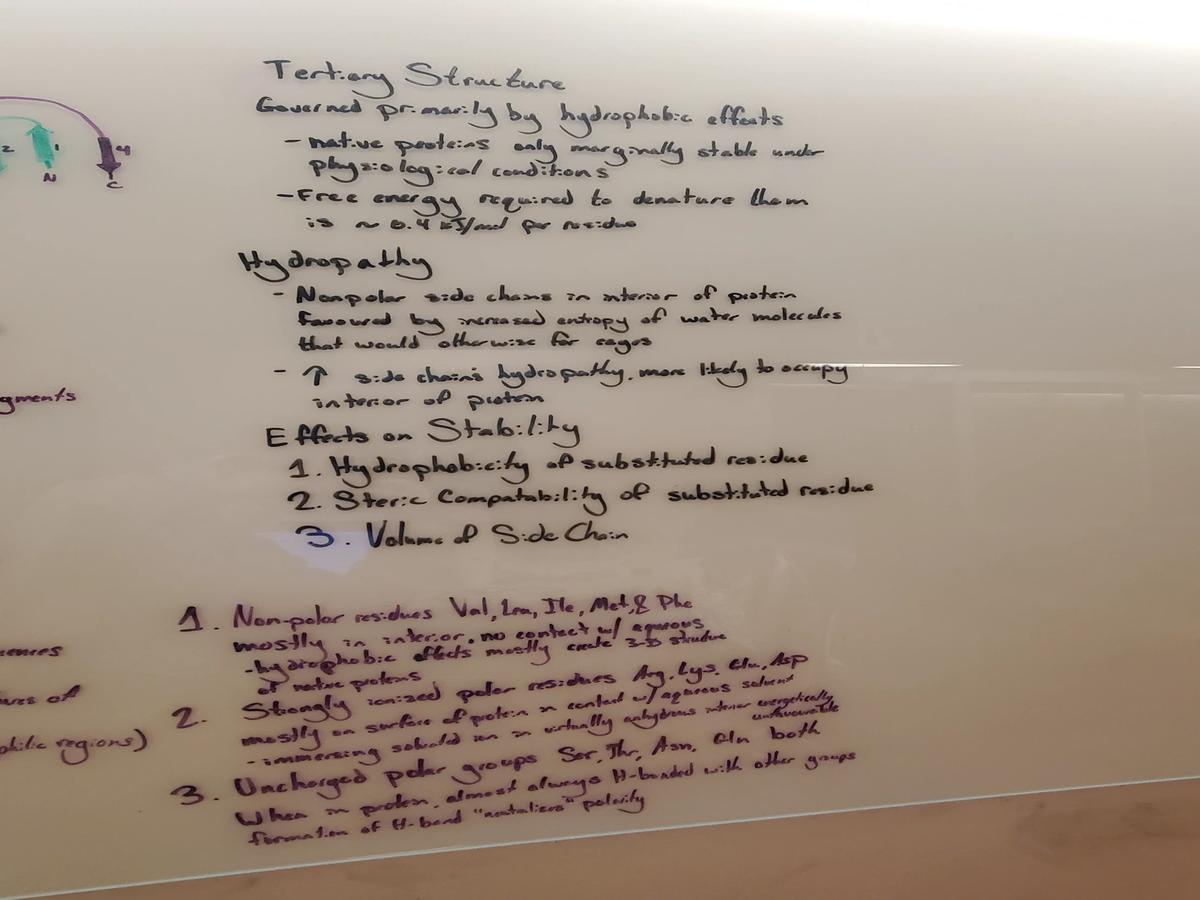 2
1
4
N
C
Tertiary Structure
Governed primarily by hydrophobic effects
- native proteins only marginally stable under
physiological conditions
- Free energy required to denature them
is ~ 0.4 kJ/mol per residue
Hydropathy
- Nonpolar side chains in interior of protein
favoured by increased entropy of water molecules
that would otherwise for cages
- ↑ side chain's hydropathy, more likely to occupy
interior of protein
Effects on Stability
1. Hydrophobicity of substituted residue
2. Steric Compatability of substituted residue
3. Volume of Side Chain
gments
philic regions)
1. Non-polar residues Val, Leu, Ile, Met, & Phe
mostly in interior, no contact w/ aqueous
- hydrophobic effects mostly create 3-D structure
of native proteins
2. Strongly ionized polar residues Arg, Lys, Glu, Asp
mostly on surface of protein in contact w/ aqueous solvent
- immersing solvated ion in virtually anhydrous interior energetically
unfavourable
3. Uncharged polar groups Ser, Thr, Asn, Gln both
When in protein, almost always H-bonded with other groups
formation of H-bond "neutralizes" polarity